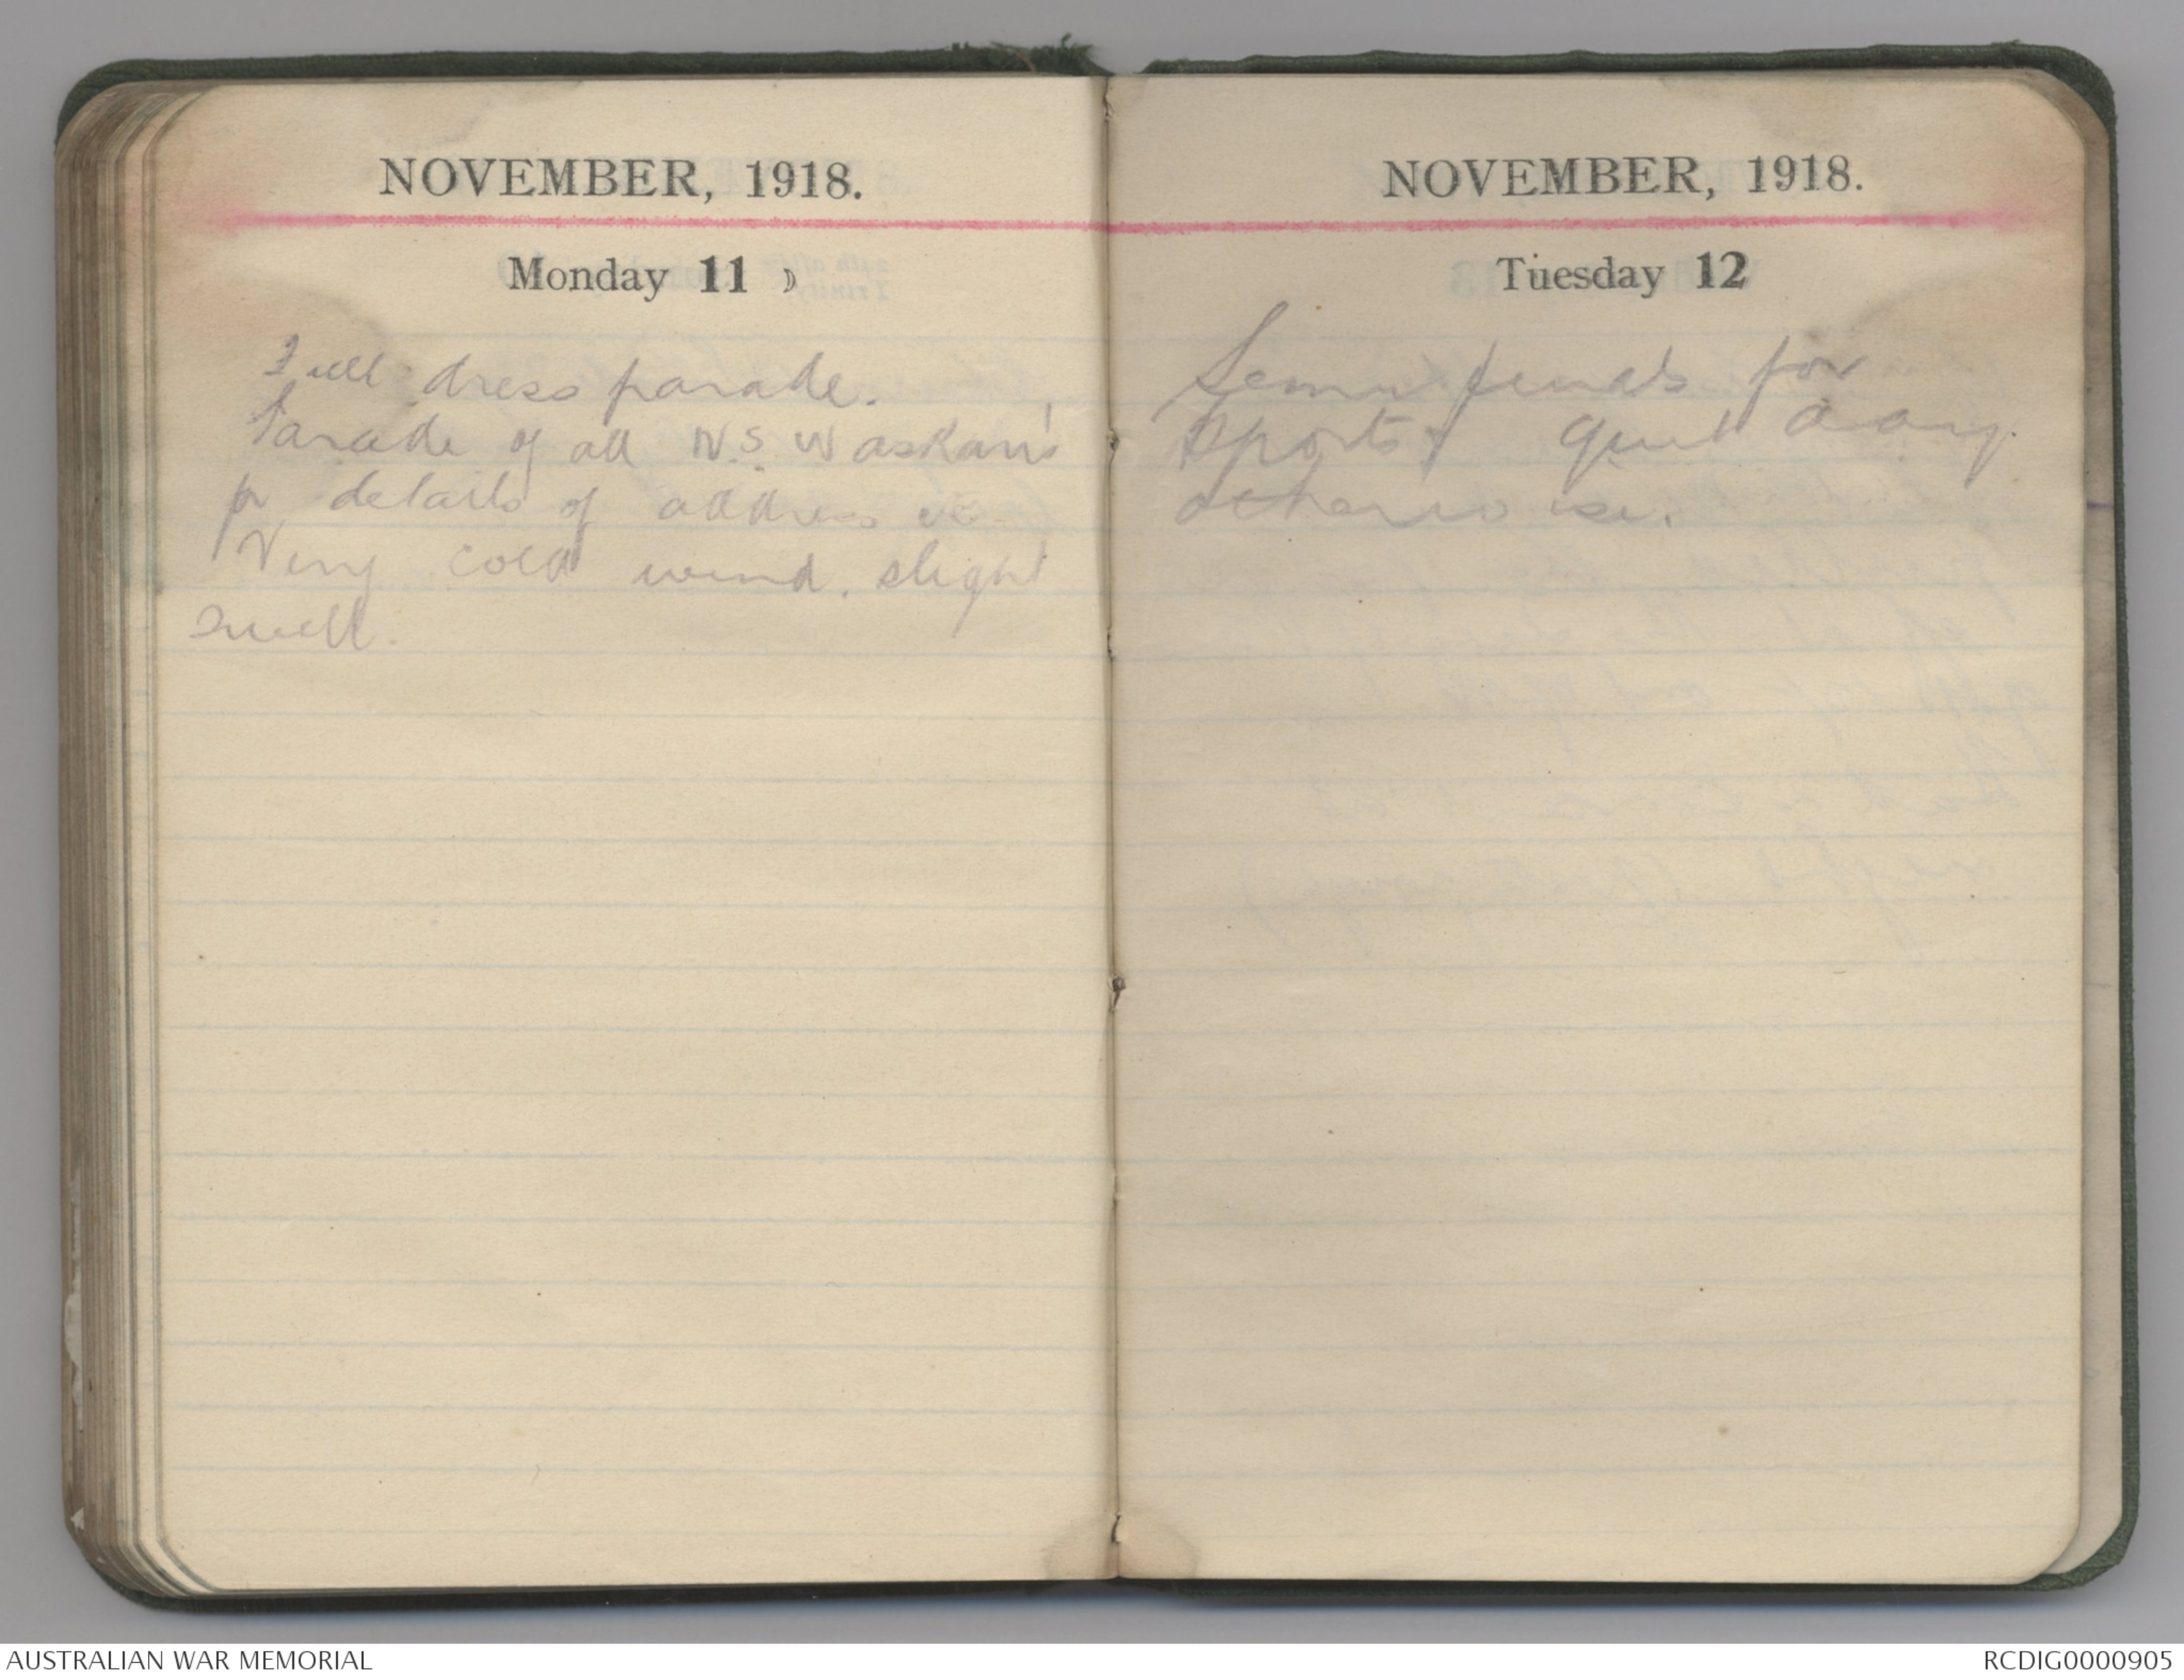 NOVEMBER, 1918.
Monday 11
Full dress parade.
Parade of all N.S.W
for details of address etc.
Very cold wind, slight
swell.
NOVEMBER, 1918.
Tuesday 12
Semi finals for
sports quiet day
otherwise.
AUSTRALIAN WAR MEMORIAL
RCDIG0000905